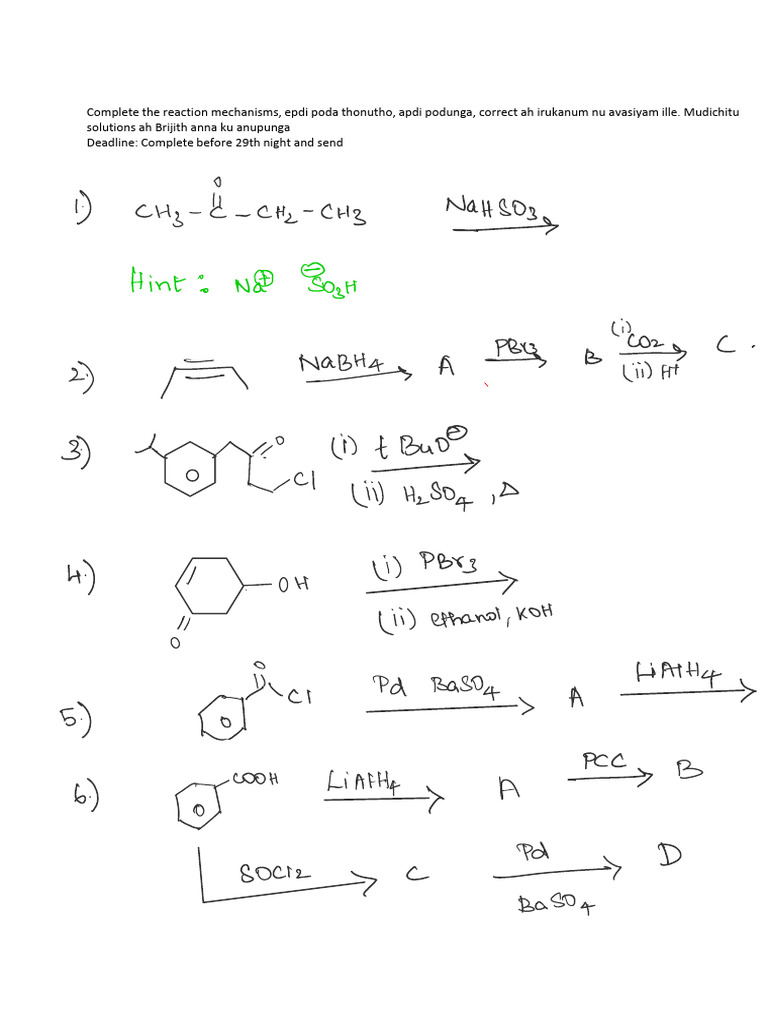 Complete the reaction mechanisms, epdi poda thonutho, apdi podunga, correct ah irukanum nu avasiyam ille. Mudichitu
solutions ah Brijith anna ku anupunga
Deadline: Complete before 29th night and send
1) CH3 - C - CH2 - CH3 NaHSO3
O
Hint : Na⊕ ⊖SO3H
2.) NaBH4 A PBr3 B (i) CO2 (ii) H+ C .
3.) O Cl (i) t BuO⊖
(ii) H2SO4 , Δ
4.) OH O (i) PBr3
(ii) ethanol, KOH
5.) O Cl Pd BaSO4 A LiAlH4
6.) COOH LiAlH4 A PCC B
SOCl2 C Pd D
BaSO4